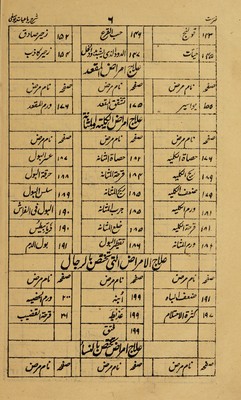 فہرست ۶
۱۴۳ قولنج ۱۴۶ حب القرع ۱۵۲ زحیر صادق
۱۴۵ حیات ۱۵۴ زحیر کاذب
علاج امراض المقعد
صفحہ نام مرض صفحہ نام مرض صفحہ نام مرض
۱۵۵ بواسیر ۱۷۵ شقاق المقعد ۱۷۶ ورم المقعد
علاج امراض الکلیہ والمثانۃ
صفحہ نام مرض صفحہ نام مرض صفحہ نام مرض
۱۷۶ حصاۃ الکلیہ ۱۸۲ حصاۃ المثانۃ ۱۸۷ عسر البول
ریح الکلیہ قرحۃ المثانۃ ۱۸۸ حرقۃ البول
۱۷۹ ضعف الکلیہ ریح المثانۃ ۱۸۹ سلس البول
۱۸۱ ورم الکلیہ ۱۸۵ جرب المثانۃ ۱۹۰ البول فی الفراش
۱۸۱ قرحۃ الکلیہ ۱۸۵ خلع المثانۃ ۱۹۰ ذیابیطس
۱۸۲ ورم المثانۃ ۱۸۶ تقطیر البول ۱۹۱ بول الدم
علاج الامراض التی تختص بالرجال
صفحہ نام مرض صفحہ نام مرض صفحہ نام مرض
۱۹۱ ضعف الباہ ۱۹۹ ابنہ ۲۰۰ ورم الخصیہ
۱۹۷ کثرۃ الاحتلام ۱۹۹ عذیوط قرحۃ القضیب
۱۹۹ فتق
علاج امراض تختص بالنساء
صفحہ نام مرض صفحہ نام مرض صفحہ نام مرض